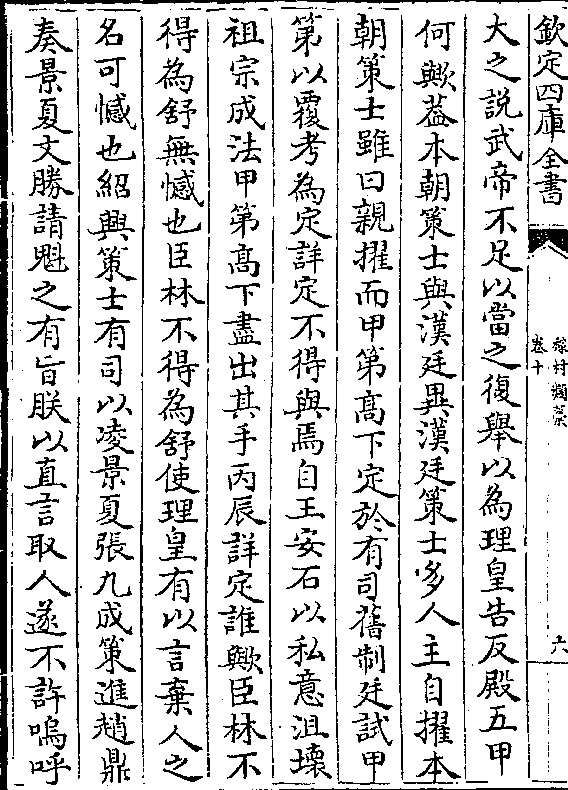 欽定四庫全書
稼村類藁
卷十
六
大之說武帝不足以當之復舉以為理皇告反殿五甲
何歟葢本朝策士與漢廷異漢廷策士多人主自擢本
朝策士雖曰親擢而甲第髙下定於有司舊制廷試甲
第以覆考為定詳定不得與焉自王安石以私意沮壊
祖宗成法甲第髙下盡出其手丙辰詳定誰歟臣林不
得為舒無憾也臣林不得為舒使理皇有以言棄人之
名可憾也紹興策士有司以凌景夏張九成策進趙鼎
奏景夏文勝請魁之有旨朕以直言取人遂不許嗚呼